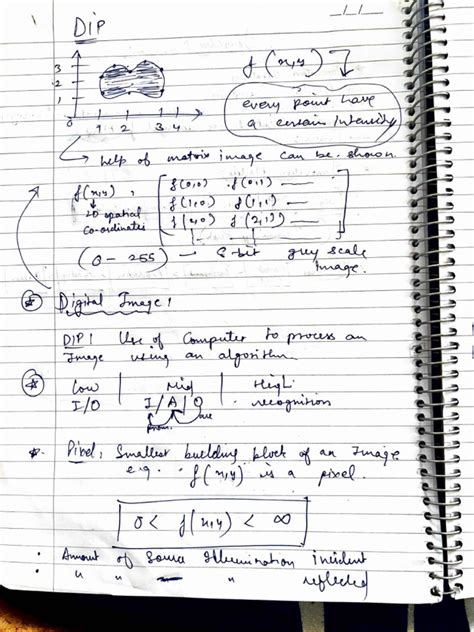 DIP
3
2
1
0 1 2 3 4
f(x,y)
every point have
a certain Intensity
help of matrix image can be shown.
f(x,y), [ f(0,0) f(0,1) —
2D spatial f(1,0) f(1,1) —
co-ordinates f(2,0) f(2,1) — ]
(0 - 255) — 8-bit grey scale
image.
Digital Image:
DIP: Use of Computer to process an
Image using an algorithm.
Low | Mid | High
I/O | I/A/O | recognition
Pixel: Smallest building block of an Image
e.g. f(x,y) is a pixel.
0 < f(x,y) < ∞
Amount of Source Illumination incident
" " " reflected